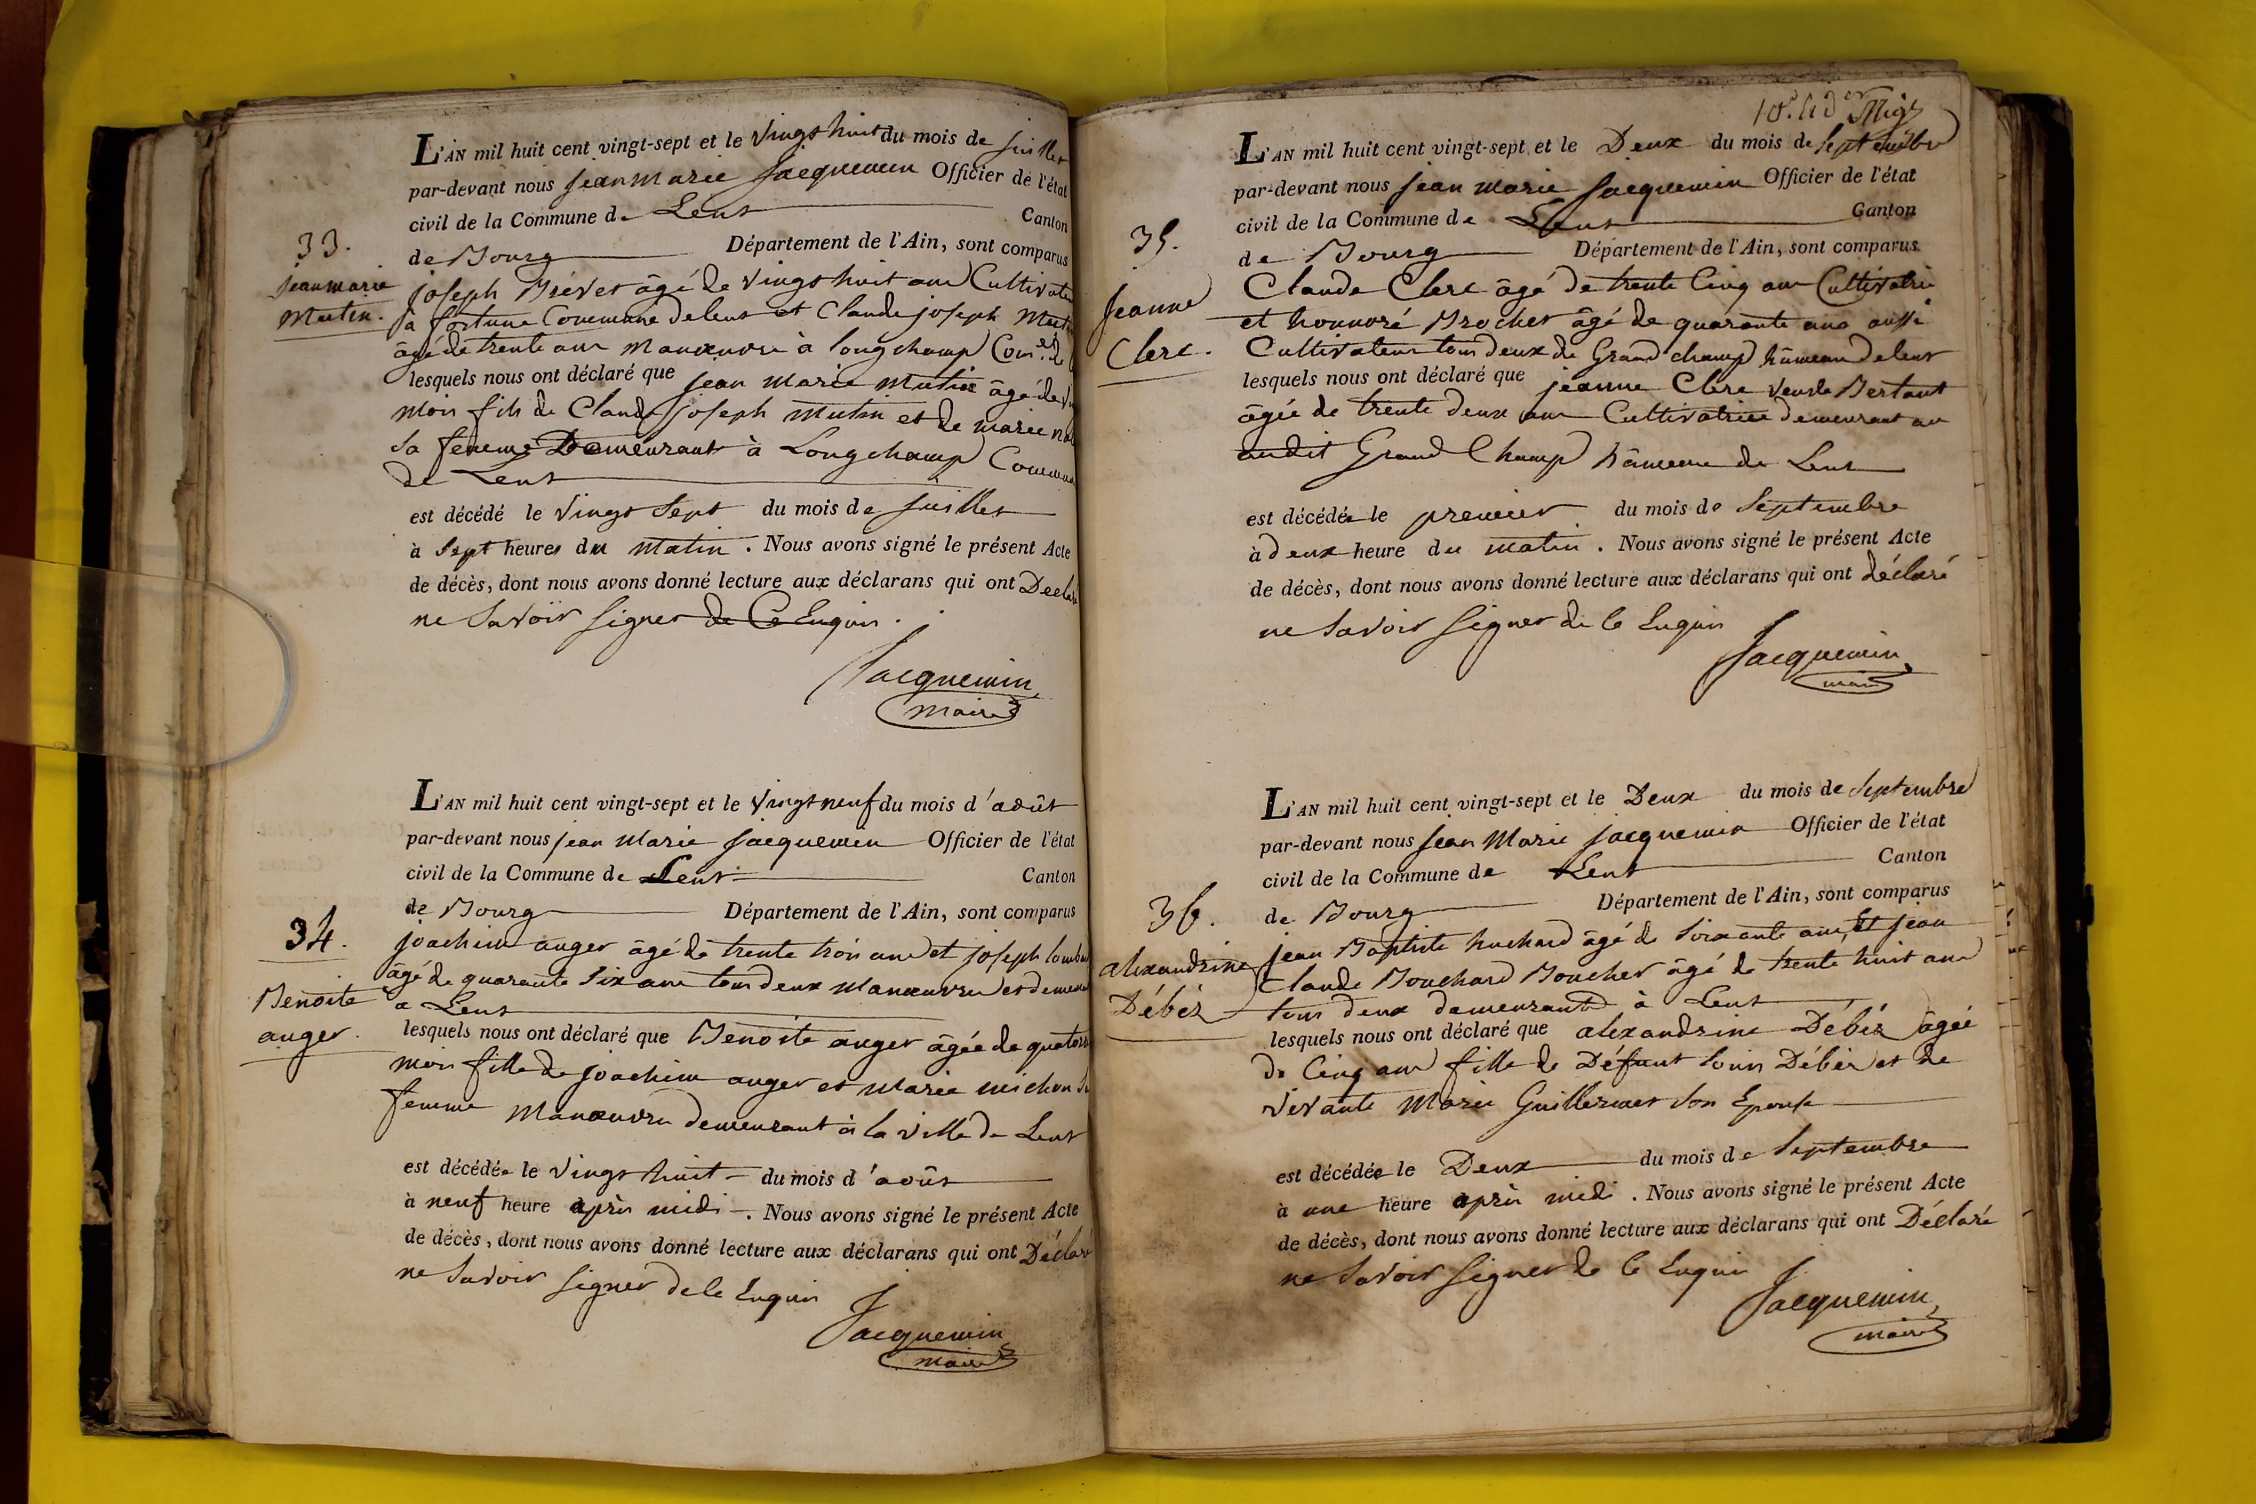 33.
jean marie
Mutin.
L'AN mil huit cent vingt-sept et le Vingt huit du mois de juillet
par-devant nous jean Marie Jacquemin Officier de l'état
civil de la Commune de Lent Canton
de Bourg Département de l'Ain, sont comparus
joseph Brévet âgé de Vingt huit ans Cultivateur
à fortune Commune de lent et Claude joseph Mutin
âgé de trente ans Manœuvre à longchamp Com.e de
lesquels nous ont déclaré que jean Marie Mutin âgé de
Mois fils de Claude joseph Mutin et de Marie
Sa femme Demeurant à Longchamp Commune
de Lent
est décédé le Vingt Sept du mois de juillet
à Sept heures du Matin. Nous avons signé le présent Acte
de décès, dont nous avons donné lecture aux déclarans qui ont Déclaré
ne Savoir Signer de Ce Enquis.
Jacquemin
Maire
34.
Benoite
anger.
L'AN mil huit cent vingt-sept et le Vingt neuf du mois d'août
par-devant nous jean Marie Jacquemin Officier de l'état
civil de la Commune de Lent Canton
de Bourg Département de l'Ain, sont comparus
joachim anger âgé de trente trois ans et joseph
âgé de quarante Six ans tous deux Manœuvre et demeurant
a Lent
lesquels nous ont déclaré que Benoite anger âgée de quatorze
Mois fille de joachim anger et Marie Michon Sa
femme Manœuvre demeurant à la Ville de Lent
est décédée le Vingt huit du mois d'août
à neuf heure après midi. Nous avons signé le présent Acte
de décès, dont nous avons donné lecture aux déclarans qui ont Déclaré
ne Savoir Signer de Ce Enquis
Jacquemin
Maire
35.
Jeanne
Clerc.
L'AN mil huit cent vingt-sept et le Deux du mois de Septembre
par-devant nous jean Marie Jacquemin Officier de l'état
civil de la Commune de Lent Canton
de Bourg Département de l'Ain, sont comparus
Claude Clerc âgé de trente Cinq ans Cultivateur
et honnoré Brochet âgé de quarante ans aussi
Cultivateur tous deux du Grand champ hâmeau de lent
lesquels nous ont déclaré que jeanne Clerc Veuve Bertaut
âgée de trente deux ans Cultivatrice demeurant au
audit Grand Champ hâmeau de Lent
est décédée le premier du mois de Septembre
à deux heure du matin. Nous avons signé le présent Acte
de décès, dont nous avons donné lecture aux déclarans qui ont déclaré
ne Savoir Signer de Ce Enquis
Jacquemin
maire
36.
alexandrine
Débéz
L'AN mil huit cent vingt-sept et le Deux du mois de Septembre
par-devant nous jean Marie jacquemin Officier de l'état
civil de la Commune de Lent Canton
de Bourg Département de l'Ain, sont comparus
jean Baptiste huchard âgé de Soixante ans, Et jean
Claude Bouchard Boucher âgé de trente huit ans
tous deux demeurant à Lent
lesquels nous ont déclaré que alexandrine Débéz âgée
de Cinq ans fille de Défunt Louis Débéz et de
Vivante Marie Guillermet Son Epouse
est décédée le Deux du mois de Septembre
à une heure après midi. Nous avons signé le présent Acte
de décès, dont nous avons donné lecture aux déclarans qui ont Déclaré
ne Savoir Signer de Ce Enquis
Jacquemin
maire